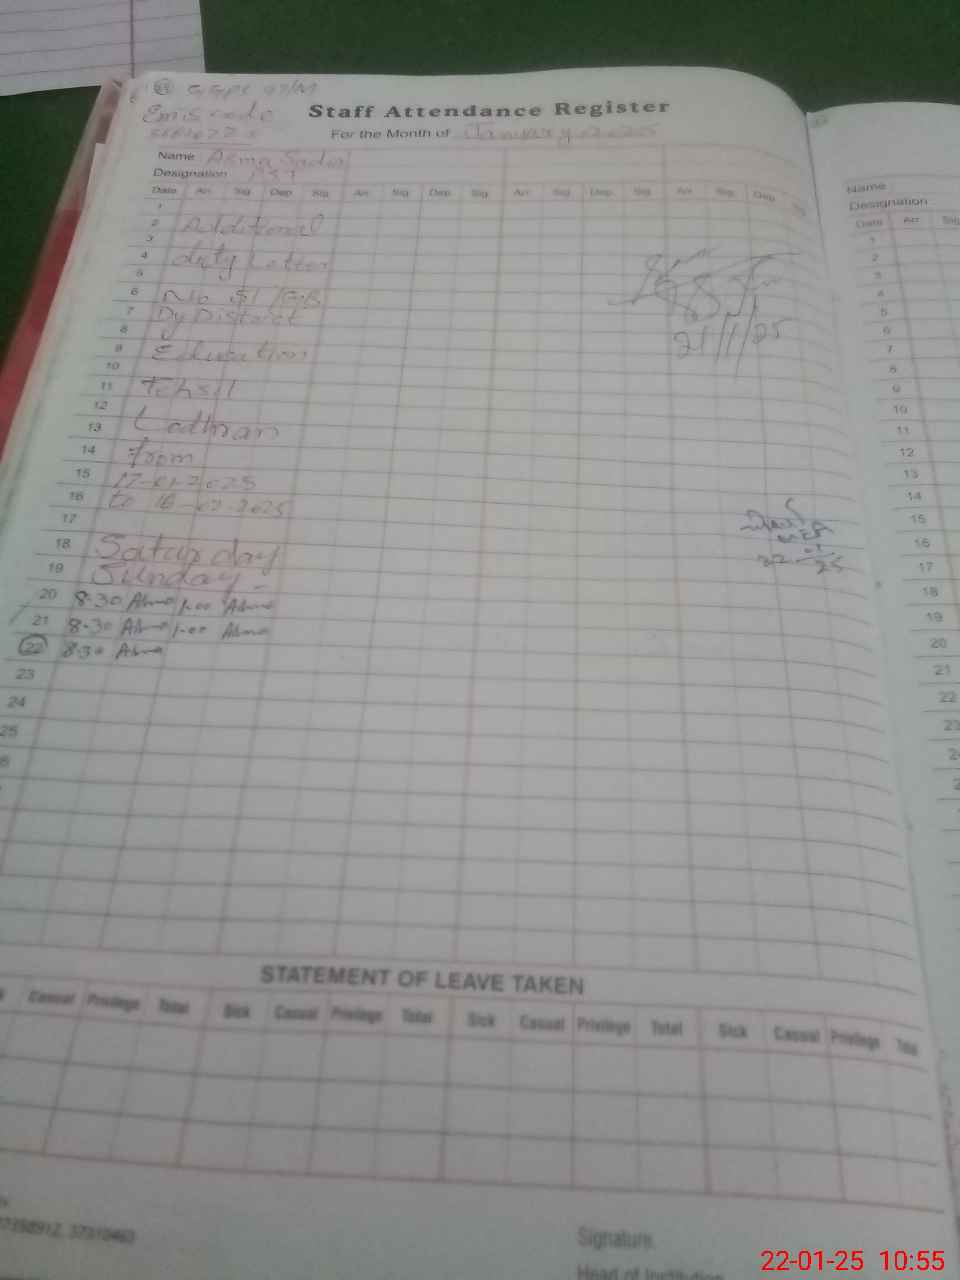 Emis code
Staff Attendance Register
For the Month of January 2025
Name Asma Sadiq
Designation PST
Date Arr. Sig. Dep. Sig. Arr. Sig. Dep. Sig. Arr. Sig. Dep. Sig. Arr. Sig. Dep. Sig.
1
2 Additional
3
4 duty Letter
5
6 No 51
7 Dy District
8
9 Education
10
11 Tehsil
12
13 Lodhran
14 from
15 17-01-2025
16 to 16-02-2025
17
18 Saturday
19 Sunday
20 8:30 Asma 1:00 Asma
21 8:30 Asma 1:00 Asma
22 8:30 Asma
23
24
25
21/1/25
22-01-25
STATEMENT OF LEAVE TAKEN
Casual Privilege Total Sick Casual Privilege Total Sick Casual Privilege Total Sick Casual Privilege Total
Signature
Head of Institution
Name
Designation
Date Arr. Sig.
1
2
3
4
5
6
7
8
9
10
11
12
13
14
15
16
17
18
19
20
21
22
23
22-01-25 10:55